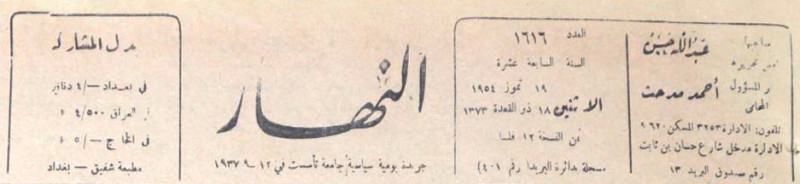 صاحبها عبد الله حسن
ورئيس تحريرها
والمسؤول أحمد مدحت
المحامي
تلفون: الادارة ٣٢٥٣ المسكن ٩٦٢٠
الادارة مدخل شارع حسان بن ثابت
رقم صندوق البريد ١٣
العدد ١٦١٦
السنة السابعة عشرة
١٩ تموز ١٩٥٤
الاثنين ١٨ ذو القعدة ١٣٧٣
ثمن النسخة ١٢ فلسا
مسجلة بدائرة البريد رقم (٤٠١)
النهار
جريدة يومية سياسية جامعة تأسست في ١٢-٩-١٩٣٧
بدل المشاركة
في بغداد —/٤ دنانير
في العراق ٤/٥٠٠ »
في الخارج —/٥ »
مطبعة شفيق - بغداد